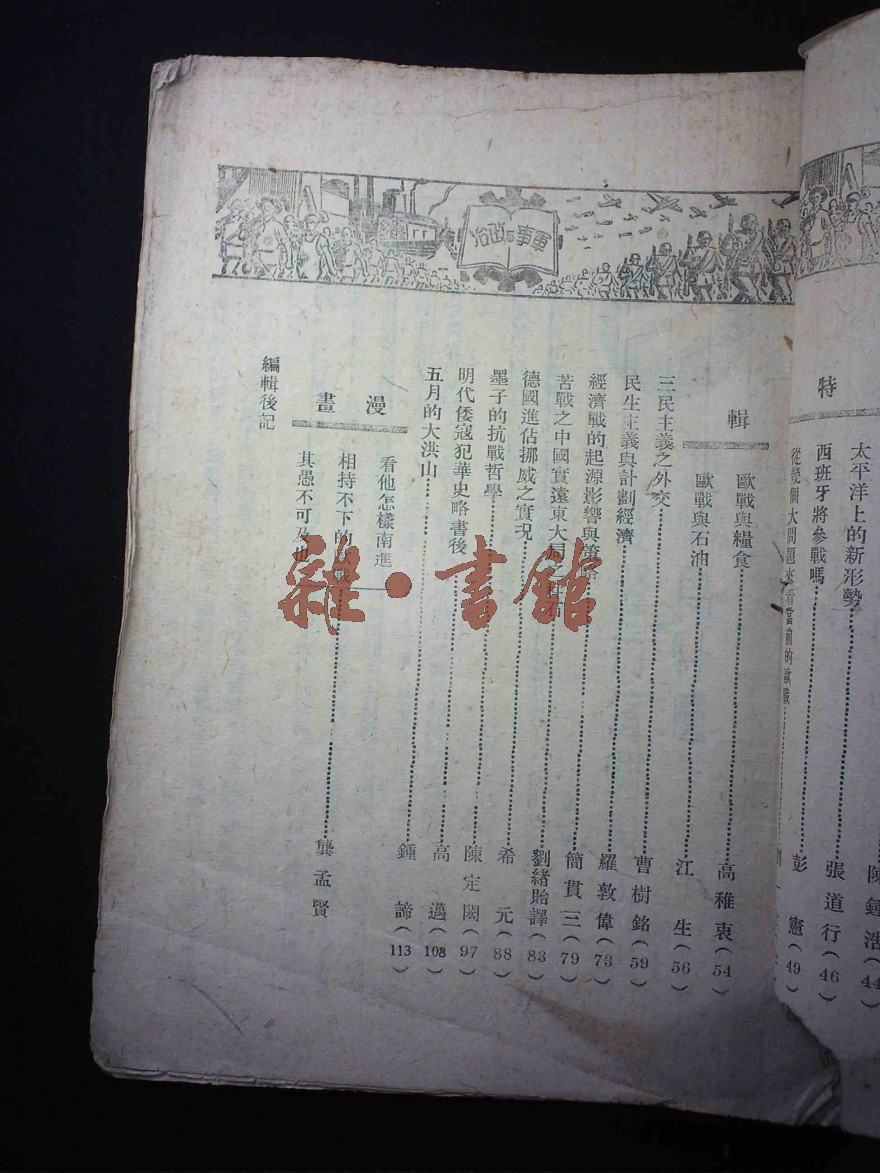 軍事與政治
特
太平洋上的新形勢 陳鍾浩(44)
西班牙將參戰嗎 張道行(46)
從幾個大問題來看當前的歐戰 彭憲(49)
輯
歐戰與糧食 高稚衷(54)
歐戰與石油 江生(56)
三民主義之外交 曹樹銘(59)
民生主義與計劃經濟 羅敦偉(73)
經濟戰的起源影響與 簡貫三(79)
苦戰之中國實遠東大局 石 劉緒貽譯(83)
德國進佔挪威之實況 希元(88)
墨子的抗戰哲學 陳定閎(97)
明代倭寇犯華史略書後 高邁(108)
五月的大洪山 鍾諦(113)
漫畫
看他怎樣南進
相持不下的歐戰
其愚不可及也
龔孟賢
編輯後記
雜·書館